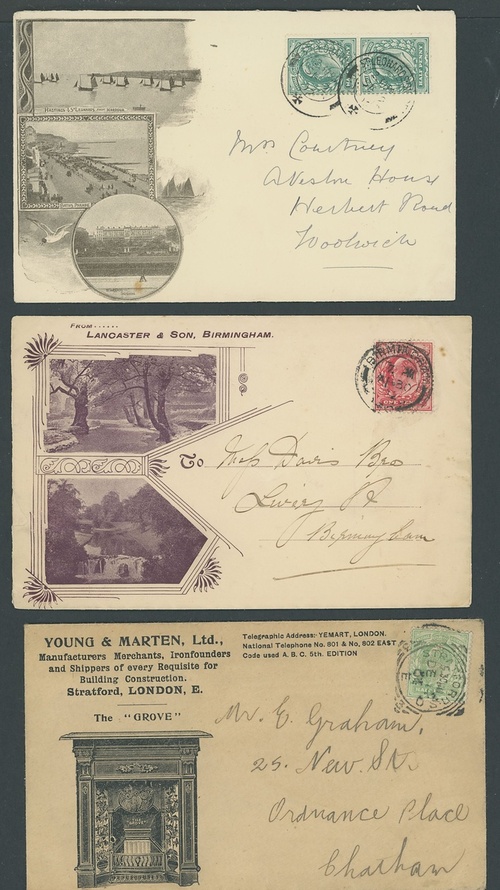 HASTINGS & ST LEONARDS FROM HARBOUR
Mrs Courtney
Herbert Road
Woolwich
FROM......
LANCASTER & SON, BIRMINGHAM.
BIRMINGHAM
To Mess Davis Bro
Livery St
Birmingham
YOUNG & MARTEN, Ltd.,
Manufacturers Merchants, Ironfounders
and Shippers of every Requisite for
Building Construction.
Stratford, LONDON, E.
The "GROVE"
Telegraphic Address: YEMART, LONDON.
National Telephone No. 801 & No, 802 EAST
Code used A. B. C. 5th. EDITION
Mr. E. Graham,
25. New St.
Ordnance Place
Chatham